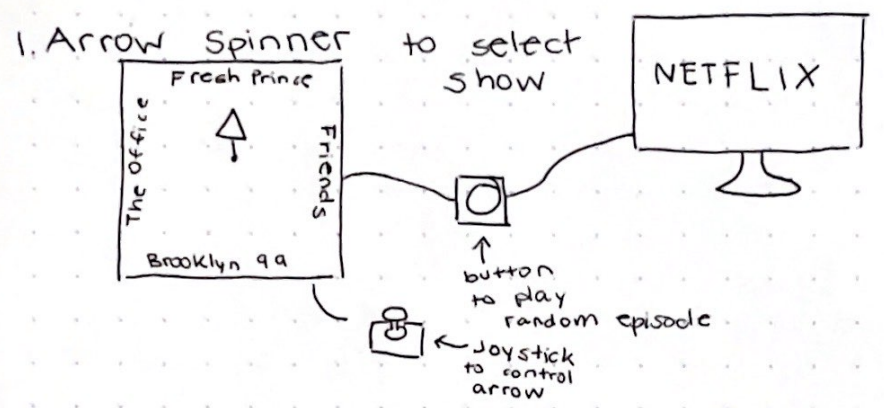 1. Arrow Spinner to select
show
Fresh Prince
The Office
Friends
Brooklyn 99
NETFLIX
button
to play
random episode
Joystick
to control
arrow